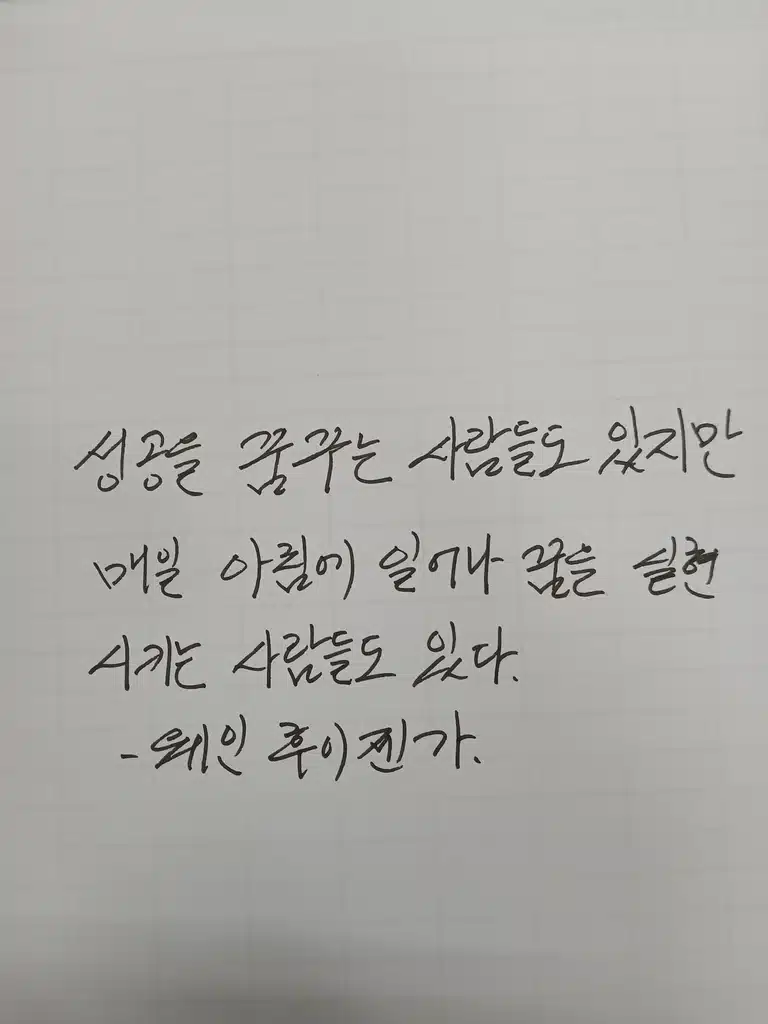 성공을 꿈꾸는 사람들도 있지만
매일 아침에 일어나 꿈을 실현
시키는 사람들도 있다.
- 웨인 후이젠가.